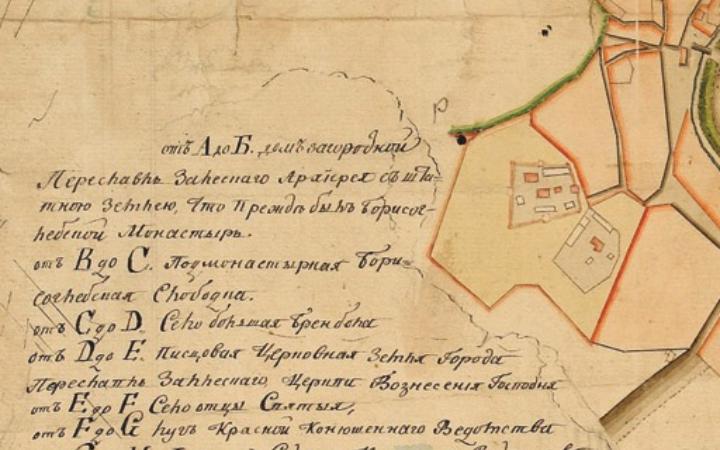 Р
отъ А до Б. домъ загородной
Переславль Залескаго Архіерея съ шта-
тною землею, что прежде былъ Борисог-
лебской Монастырь.
отъ В до С. Подмонастырная Бори-
соглебская Слободка.
отъ С до D. Село большая Брембола
отъ D до Е. писцовая Церковная Земля Города
Переславля Залескаго, Церкви Вознесенія Господня
отъ Е до F Село отцы Святыя,
отъ F до G лугъ Красной Конюшеннаго Ведомства